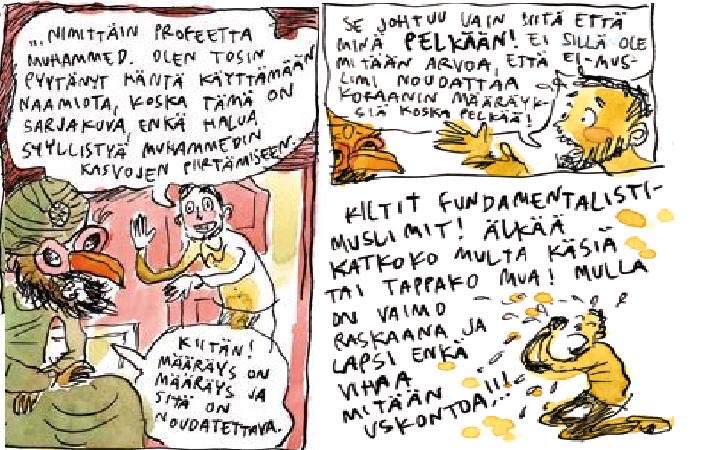 ...NIMITTÄIN PROFEETTA
MUHAMMED. OLEN TOSIN
PYYTÄNYT HÄNTÄ KÄYTTÄMÄÄN
NAAMIOTA, KOSKA TÄMÄ ON
SARJAKUVA, ENKÄ HALUA
SYYLLISTYÄ MUHAMMEDIN
KASVOJEN PIIRTÄMISEEN...
KIITÄN!
MÄÄRÄYS ON
MÄÄRÄYS JA
SITÄ ON
NOUDATETTAVA.
SE JOHTUU VAIN SIITÄ ETTÄ
MINÄ PELKÄÄN! EI SILLÄ OLE
MITÄÄN ARVOA, ETTÄ EI-MUS-
LIMI NOUDATTAA
KORAANIN MÄÄRÄYK-
SIÄ KOSKA PELKÄÄ!
KILTIT FUNDAMENTALISTI-
MUSLIMIT! ÄLKÄÄ
KATKOKO MULTA KÄSIÄ
TAI TAPPAKO MUA! MULLA
ON VAIMO
RASKAANA JA
LAPSI ENKÄ
VIHAA
MITÄÄN
USKONTOA...!!!